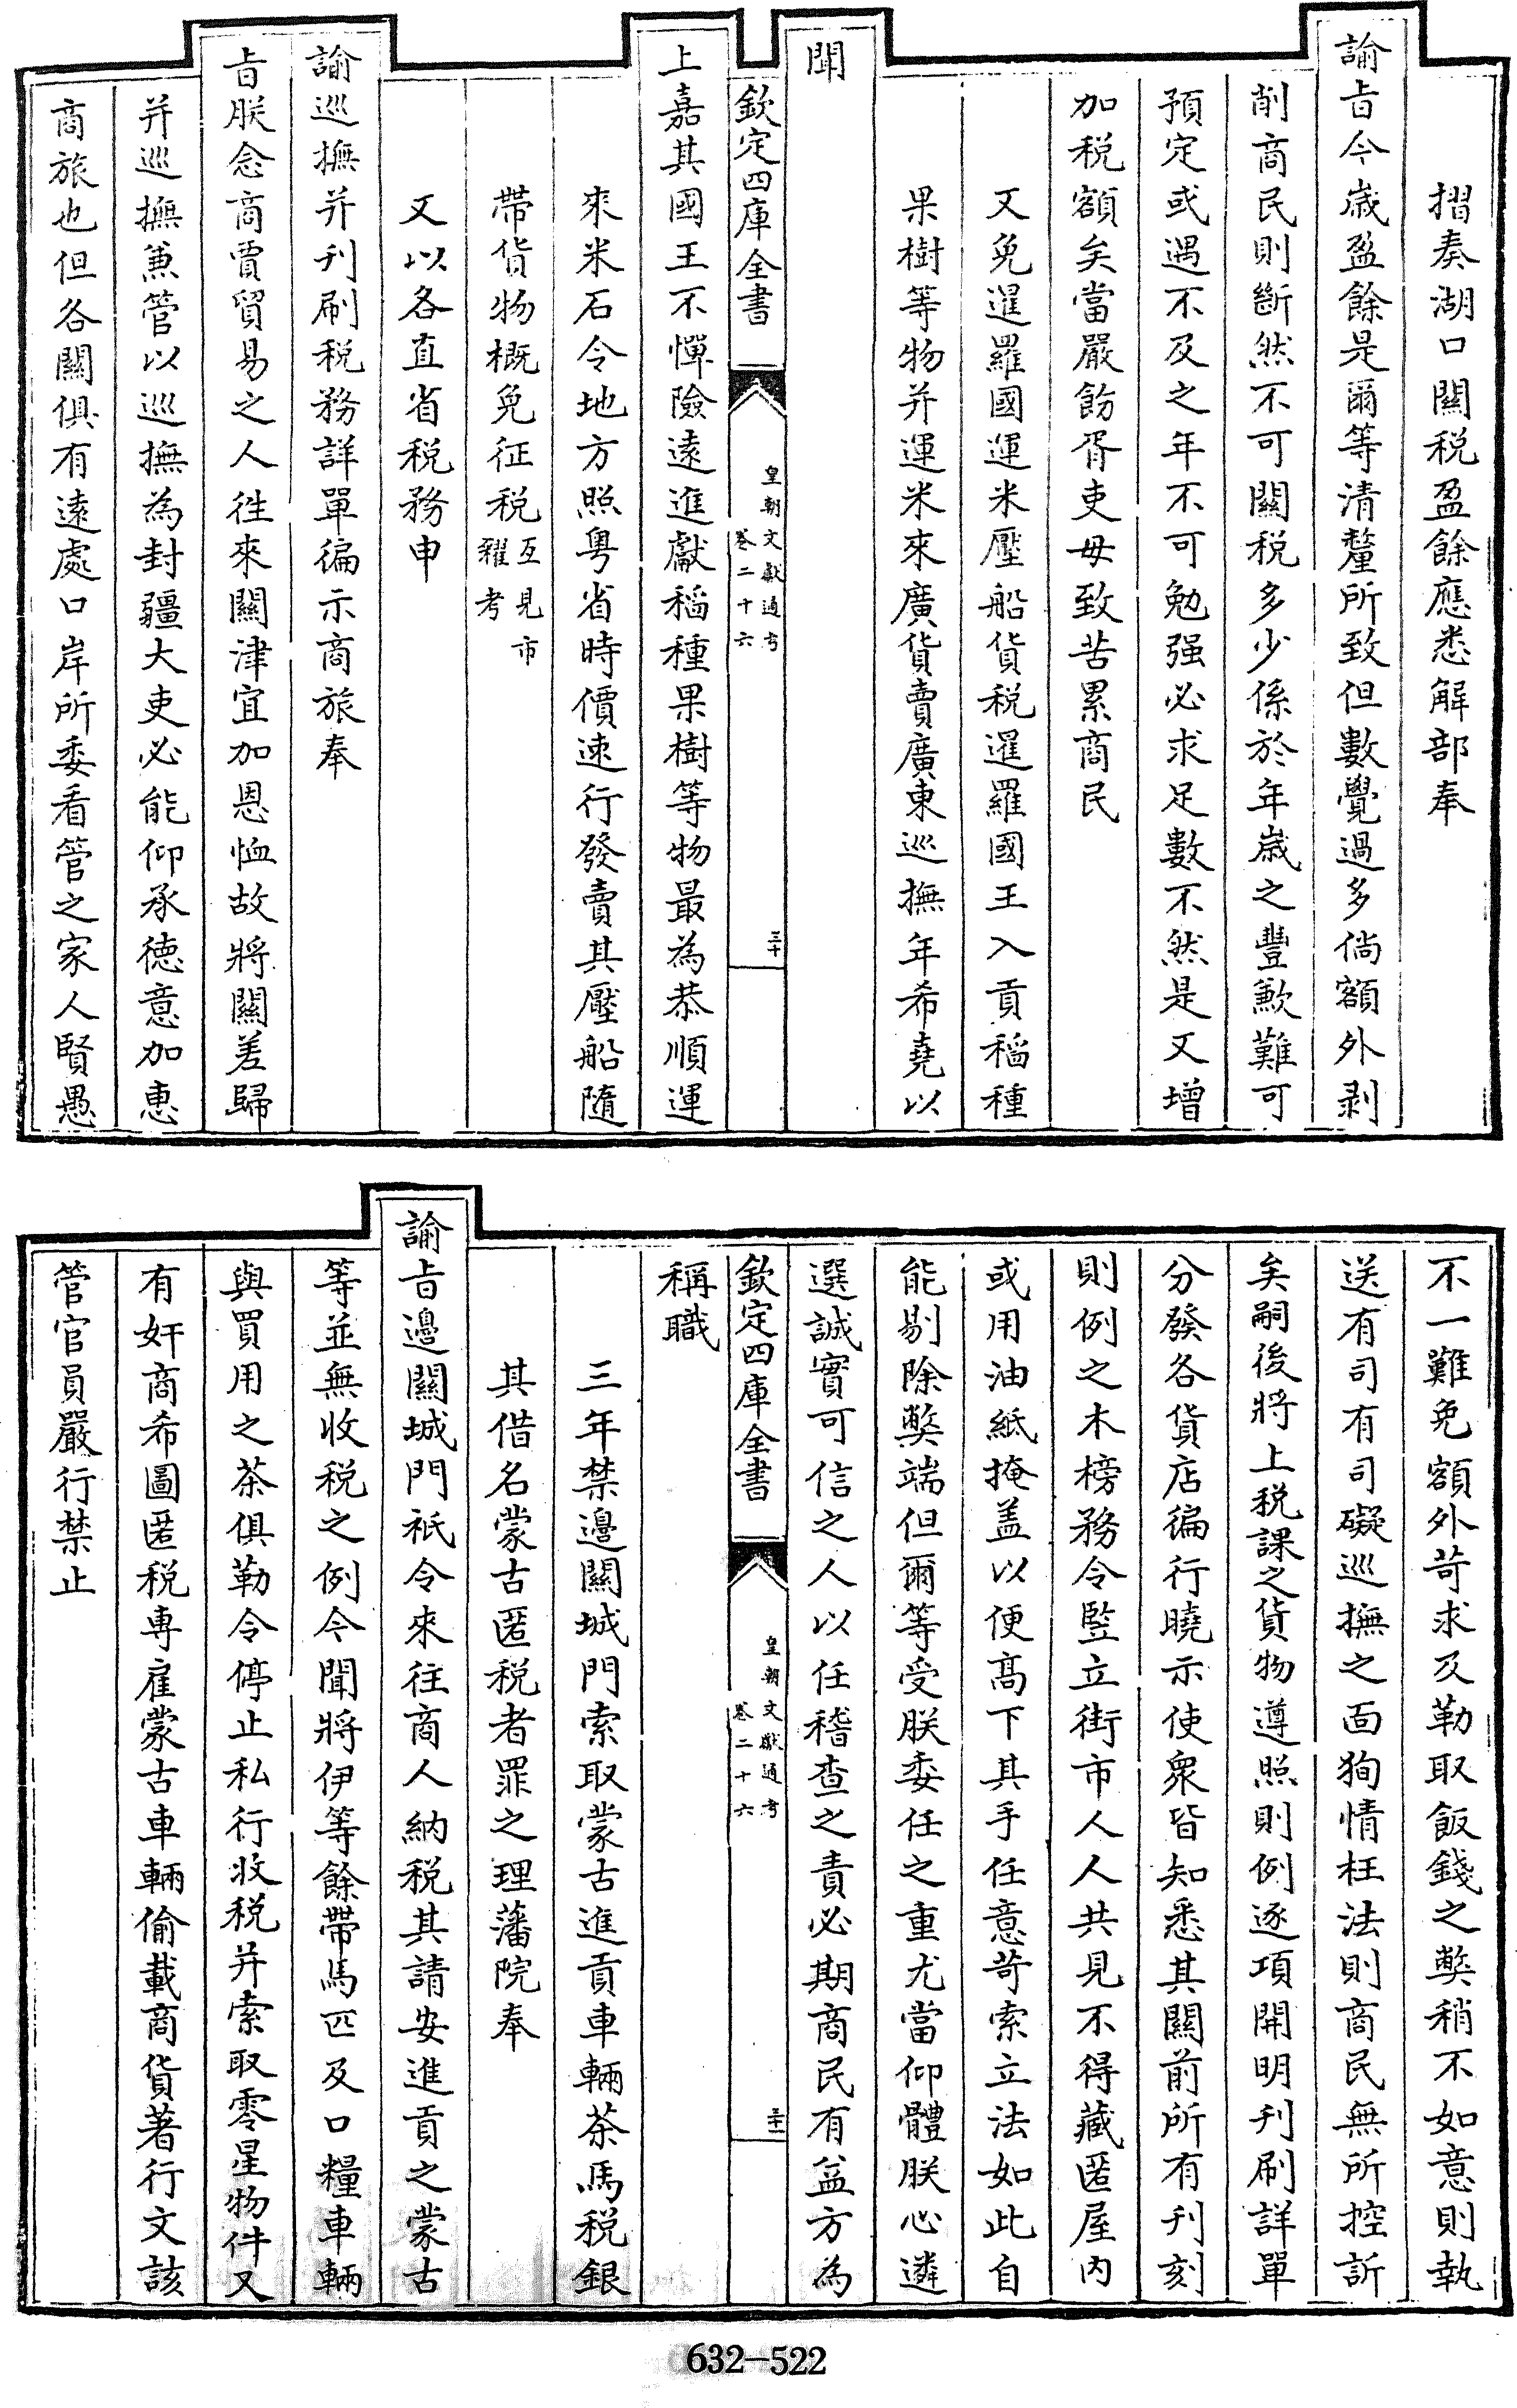 摺奏湖口關税盈餘應悉解部奉
諭㫖今歳盈餘是爾等清釐所致但數覺過多倘額外剥
削商民則斷然不可關税多少係於年歳之豐歉難可
預定或遇不及之年不可勉强必求足數不然是又增
加税額矣當嚴飭胥吏毋致苦累商民
又免暹羅國運米壓船貨税暹羅國王入貢稻種
果樹等物并運米來廣貨賣廣東巡撫年希堯以
聞
欽定四庫全書
皇朝文獻通考
卷二十六
三十
上嘉其國王不憚險遠進獻稻種果樹等物最為恭順運
來米石令地方照粤省時價速行發賣其壓船隨
帶貨物概免征税互見市
糴考
又以各直省税務申
諭巡撫并刋刷税務詳單徧示商旅奉
㫖朕念商賈貿易之人徃來關津宜加恩恤故將關差歸
并巡撫兼管以巡撫為封疆大吏必能仰承徳意加惠
商旅也但各關俱有遠處口岸所委看管之家人賢愚
不一難免額外苛求及勒取飯錢之獘稍不如意則執
送有司有司礙巡撫之面狥情枉法則商民無所控訴
矣嗣後將上税課之貨物遵照則例逐項開明刋刷詳單
分發各貨店徧行曉示使衆皆知悉其關前所有刋刻
則例之木榜務令竪立街市人人共見不得藏匿屋内
或用油紙掩盖以便高下其手任意苛索立法如此自
能剔除獘端但爾等受朕委任之重尤當仰體朕心遴
選誠實可信之人以任稽查之責必期商民有益方為
欽定四庫全書
皇朝文獻通考
卷二十六
三十一
稱職
三年禁邉關城門索取蒙古進貢車輛茶馬税銀
其借名蒙古匿税者罪之理藩院奉
諭㫖邉關城門祇令來往商人納税其請安進貢之蒙古
等並無收税之例今聞將伊等餘帶馬匹及口糧車輛
與買用之茶俱勒令停止私行收税并索取零星物件又
有奸商希圖匿税專雇蒙古車輛偷載商貨著行文該
管官員嚴行禁止
632—522